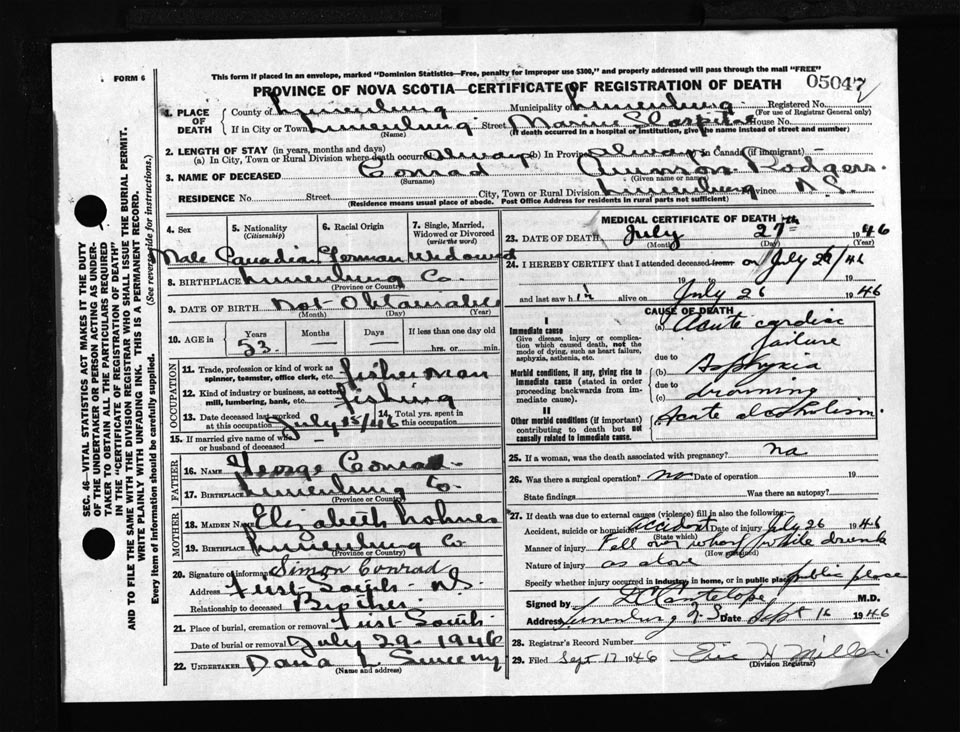 FORM 6
This form if placed in an envelope, marked "Dominion Statistics—Free, penalty for improper use $300," and properly addressed will pass through the mail "FREE"
PROVINCE OF NOVA SCOTIA—CERTIFICATE OF REGISTRATION OF DEATH
05047
SEC. 46—VITAL STATISTICS ACT MAKES IT THE DUTY
OF THE UNDERTAKER OR PERSON ACTING AS UNDER-
TAKER TO OBTAIN ALL THE PARTICULARS REQUIRED
IN THE "CERTIFICATE OF REGISTRATION OF DEATH"
AND TO FILE THE SAME WITH THE DIVISION REGISTRAR WHO SHALL ISSUE THE BURIAL PERMIT.
WRITE PLAINLY WITH UNFADING INK. THIS IS A PERMANENT RECORD.
Every item of information should be carefully supplied. (See reverse side for instructions.)
1. PLACE OF DEATH
County of Lunenburg Municipality of Lunenburg Registered No.
(For use of Registrar General only)
If in City or Town Lunenburg Street Marine Hospital House No.
(Name) (If death occurred in a hospital or institution, give the name instead of street and number)
2. LENGTH OF STAY (in years, months and days)
(a) In City, Town or Rural Division where death occurred always (b) In Province always (c) in Canada (if immigrant)
3. NAME OF DECEASED Conrad Rodgers.
(Surname) (Given or name)
RESIDENCE No. Street City, Town or Rural Division Lunenburg Province N.S.
(Residence means usual place of abode. Post Office Address for residents in rural parts not sufficient)
4. Sex 5. Nationality (Citizenship) 6. Racial Origin 7. Single, Married, Widowed or Divorced (write the word)
Male Canadian German Widowed
8. BIRTHPLACE Lunenburg Co.
(Province or Country)
9. DATE OF BIRTH Not Obtainable
(Month) (Day) (Year)
10. AGE in Years Months Days If less than one day old
53 — — hrs. or min.
OCCUPATION
11. Trade, profession or kind of work as spinner, teamster, office clerk, etc. fisherman
12. Kind of industry or business, as cotton mill, lumbering, bank, etc. fishing
13. Date deceased last worked at this occupation July 25/46 14. Total yrs. spent in this occupation
15. If married give name of wife or husband of deceased
FATHER
16. NAME George Conrad
17. BIRTHPLACE Lunenburg Co.
(Province or Country)
MOTHER
18. MAIDEN NAME Elizabeth Lohnes
19. BIRTHPLACE Lunenburg Co
(Province or Country)
20. Signature of informant Simon Conrad
Address First South N.S.
Relationship to deceased Brother
21. Place of burial, cremation or removal First South
Date of burial or removal July 29-1946
22. UNDERTAKER Dana L Sweeny
(Name and address)
MEDICAL CERTIFICATE OF DEATH
23. DATE OF DEATH July 27th 1946
(Month) (Day) (Year)
24. I HEREBY CERTIFY that I attended deceased from on July 26/46
19 to 19
and last saw him alive on July 26 1946
CAUSE OF DEATH
I
Immediate cause
Give disease, injury or complication which caused death, not the mode of dying, such as heart failure, asphyxia, asthenia, etc.
(a) Acute cardiac failure
due to
Morbid conditions, if any, giving rise to immediate cause (stated in order proceeding backwards from immediate cause).
(b) Asphyxia
due to
(c) drowning
II
Other morbid conditions (if important) contributing to death but not causally related to immediate cause.
Acute alcoholism.
25. If a woman, was the death associated with pregnancy? na
26. Was there a surgical operation? no Date of operation 19
State findings Was there an autopsy?
27. If death was due to external causes (violence) fill in also the following:
Accident, suicide or homicide? accident Date of injury July 26 1946
(State which)
Manner of injury Fell over wharf while drunk
(How sustained)
Nature of injury as above
Specify whether injury occurred in industry, in home, or in public place public place
Signed by Cantelope M.D.
Address Lunenburg N.S Date Sept 16 1946
28. Registrar's Record Number
29. Filed Sept. 17 1946 Eric H Miller
(Division Registrar)